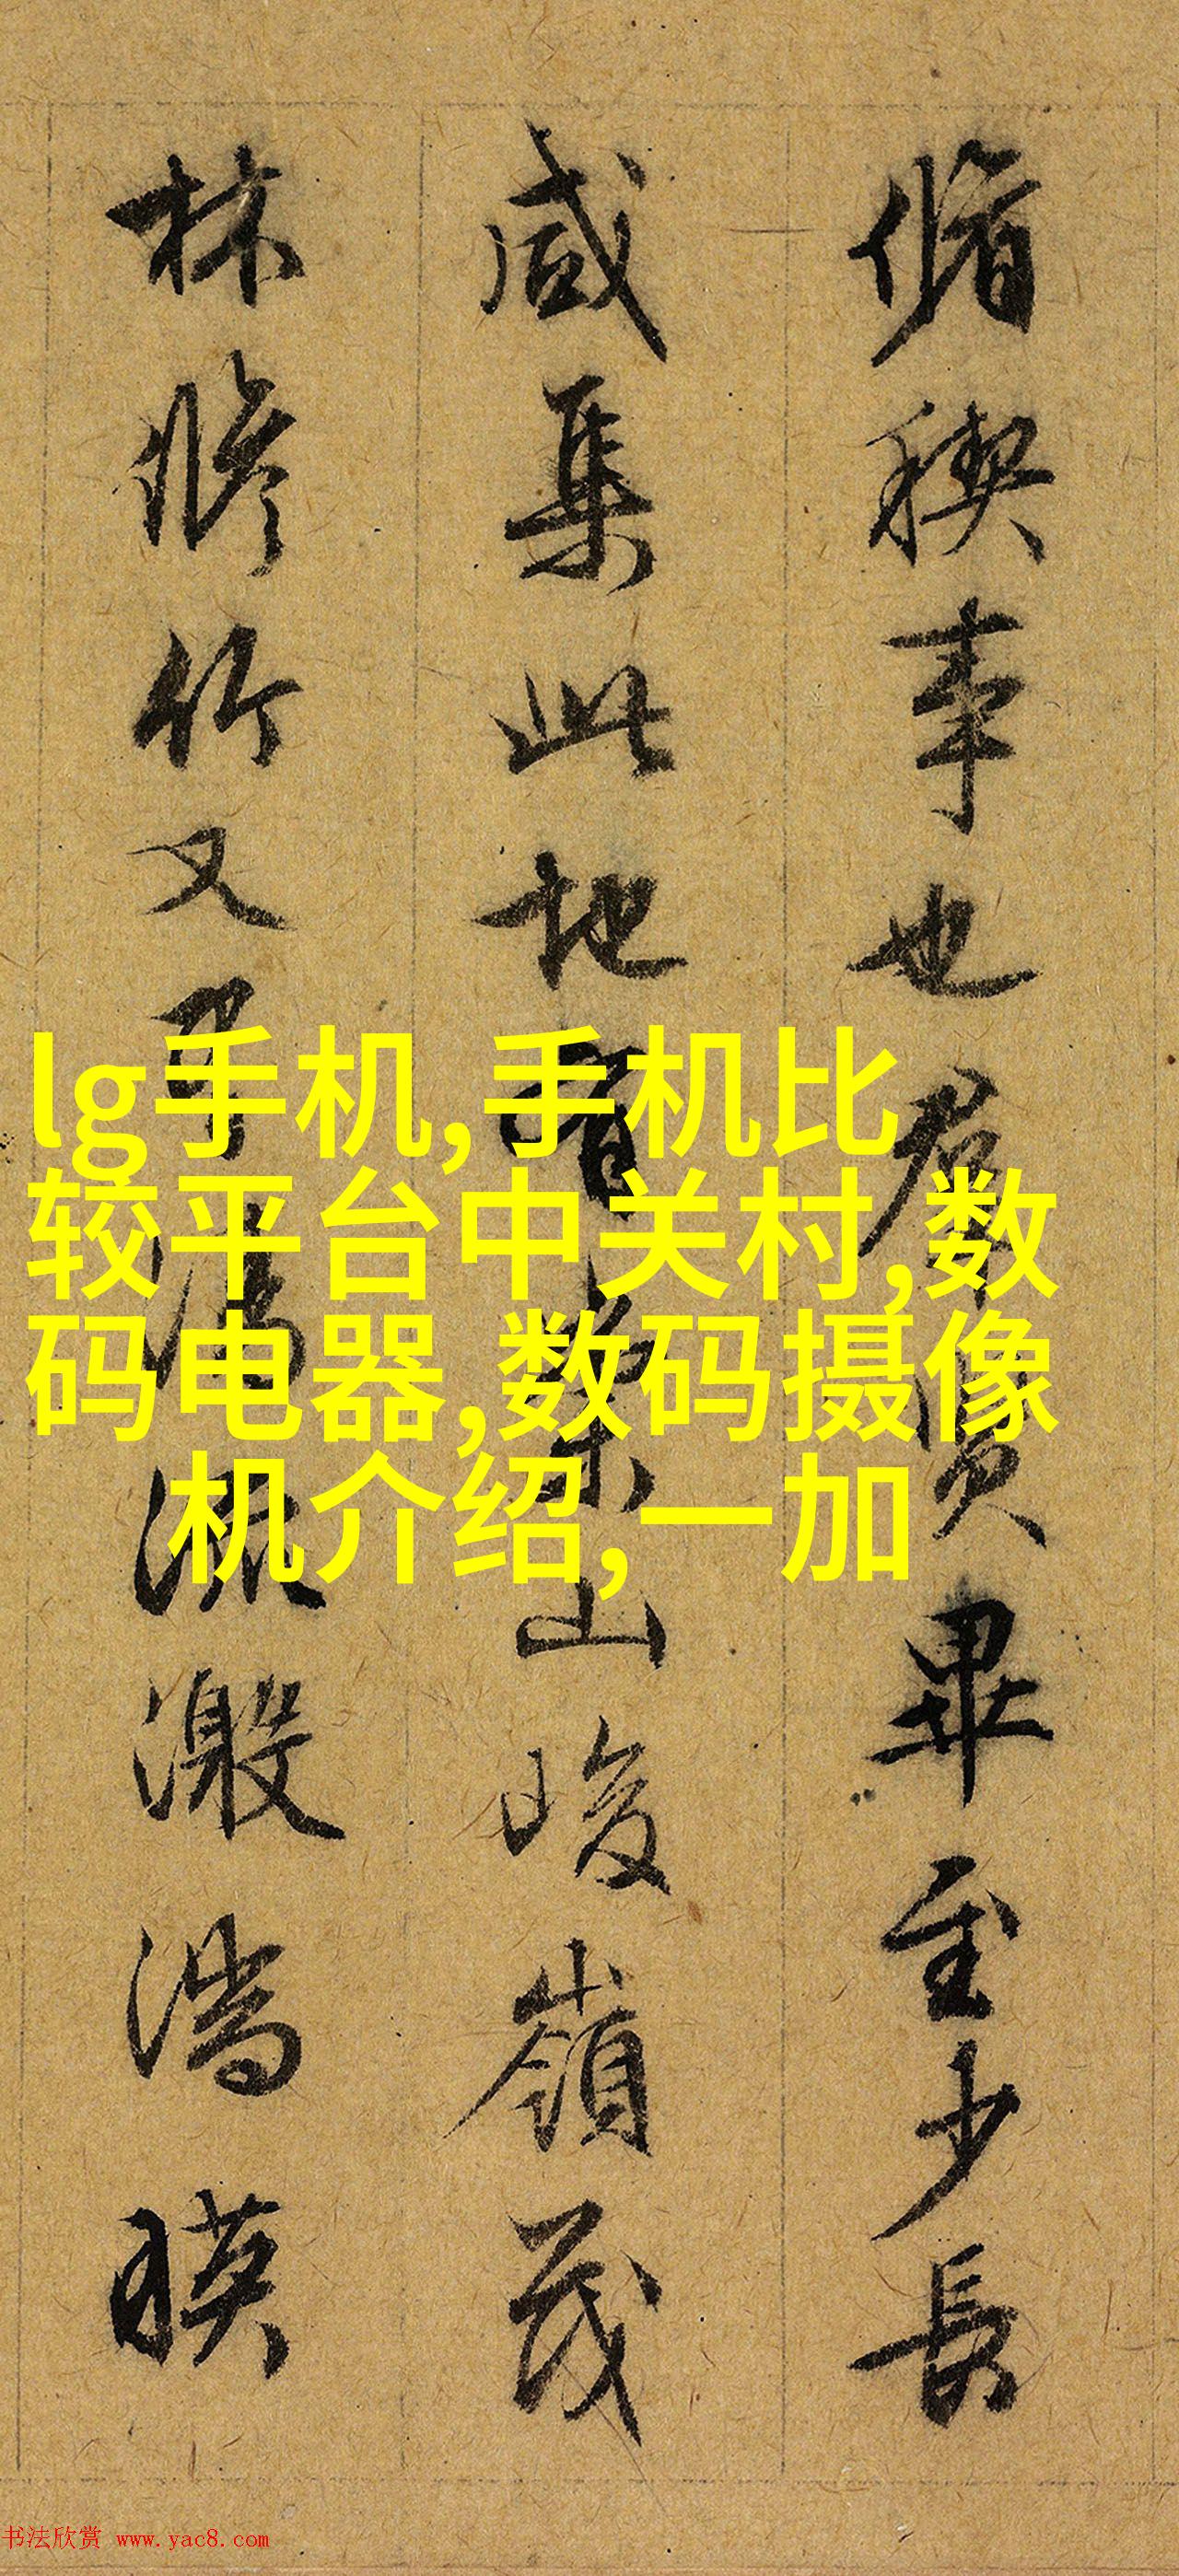 脩稧事也群賢畢至少長
咸集此地有崇山峻嶺茂
林脩竹又有清流激湍暎
lg手机,手机比
较平台中关村,数
码电器,数码摄像
机介绍,一加
书法欣赏 www.yac8.com